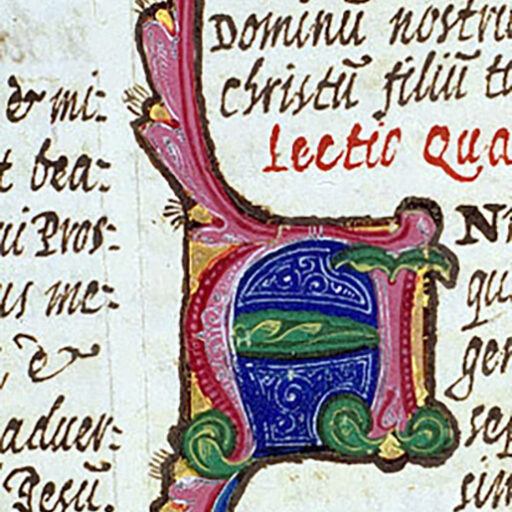 & mi:
t bea:
ui Pros:
us me:
, &
aduer:
Jesū.
Dominū nostru
Christū filiū tu
Lectio Qua
A
NI
qu
gen
sep
sim